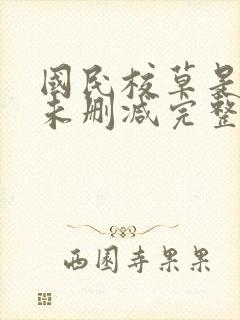 國民校草是
未删减完整
西園寺果果